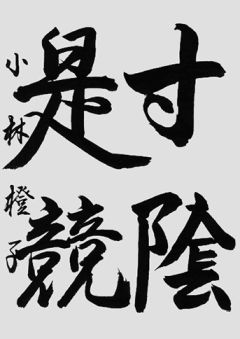 寸陰
是競
小林橙子